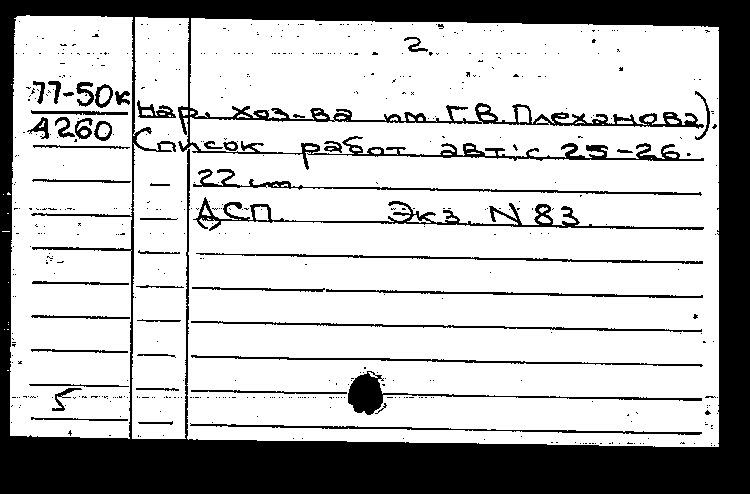 2.
77-50к
4260
нар. хоз-ва им. Г.В. Плеханова).
Список работ авт.: с 25-26.
22 см.
ДСП. Экз. N 83.
5